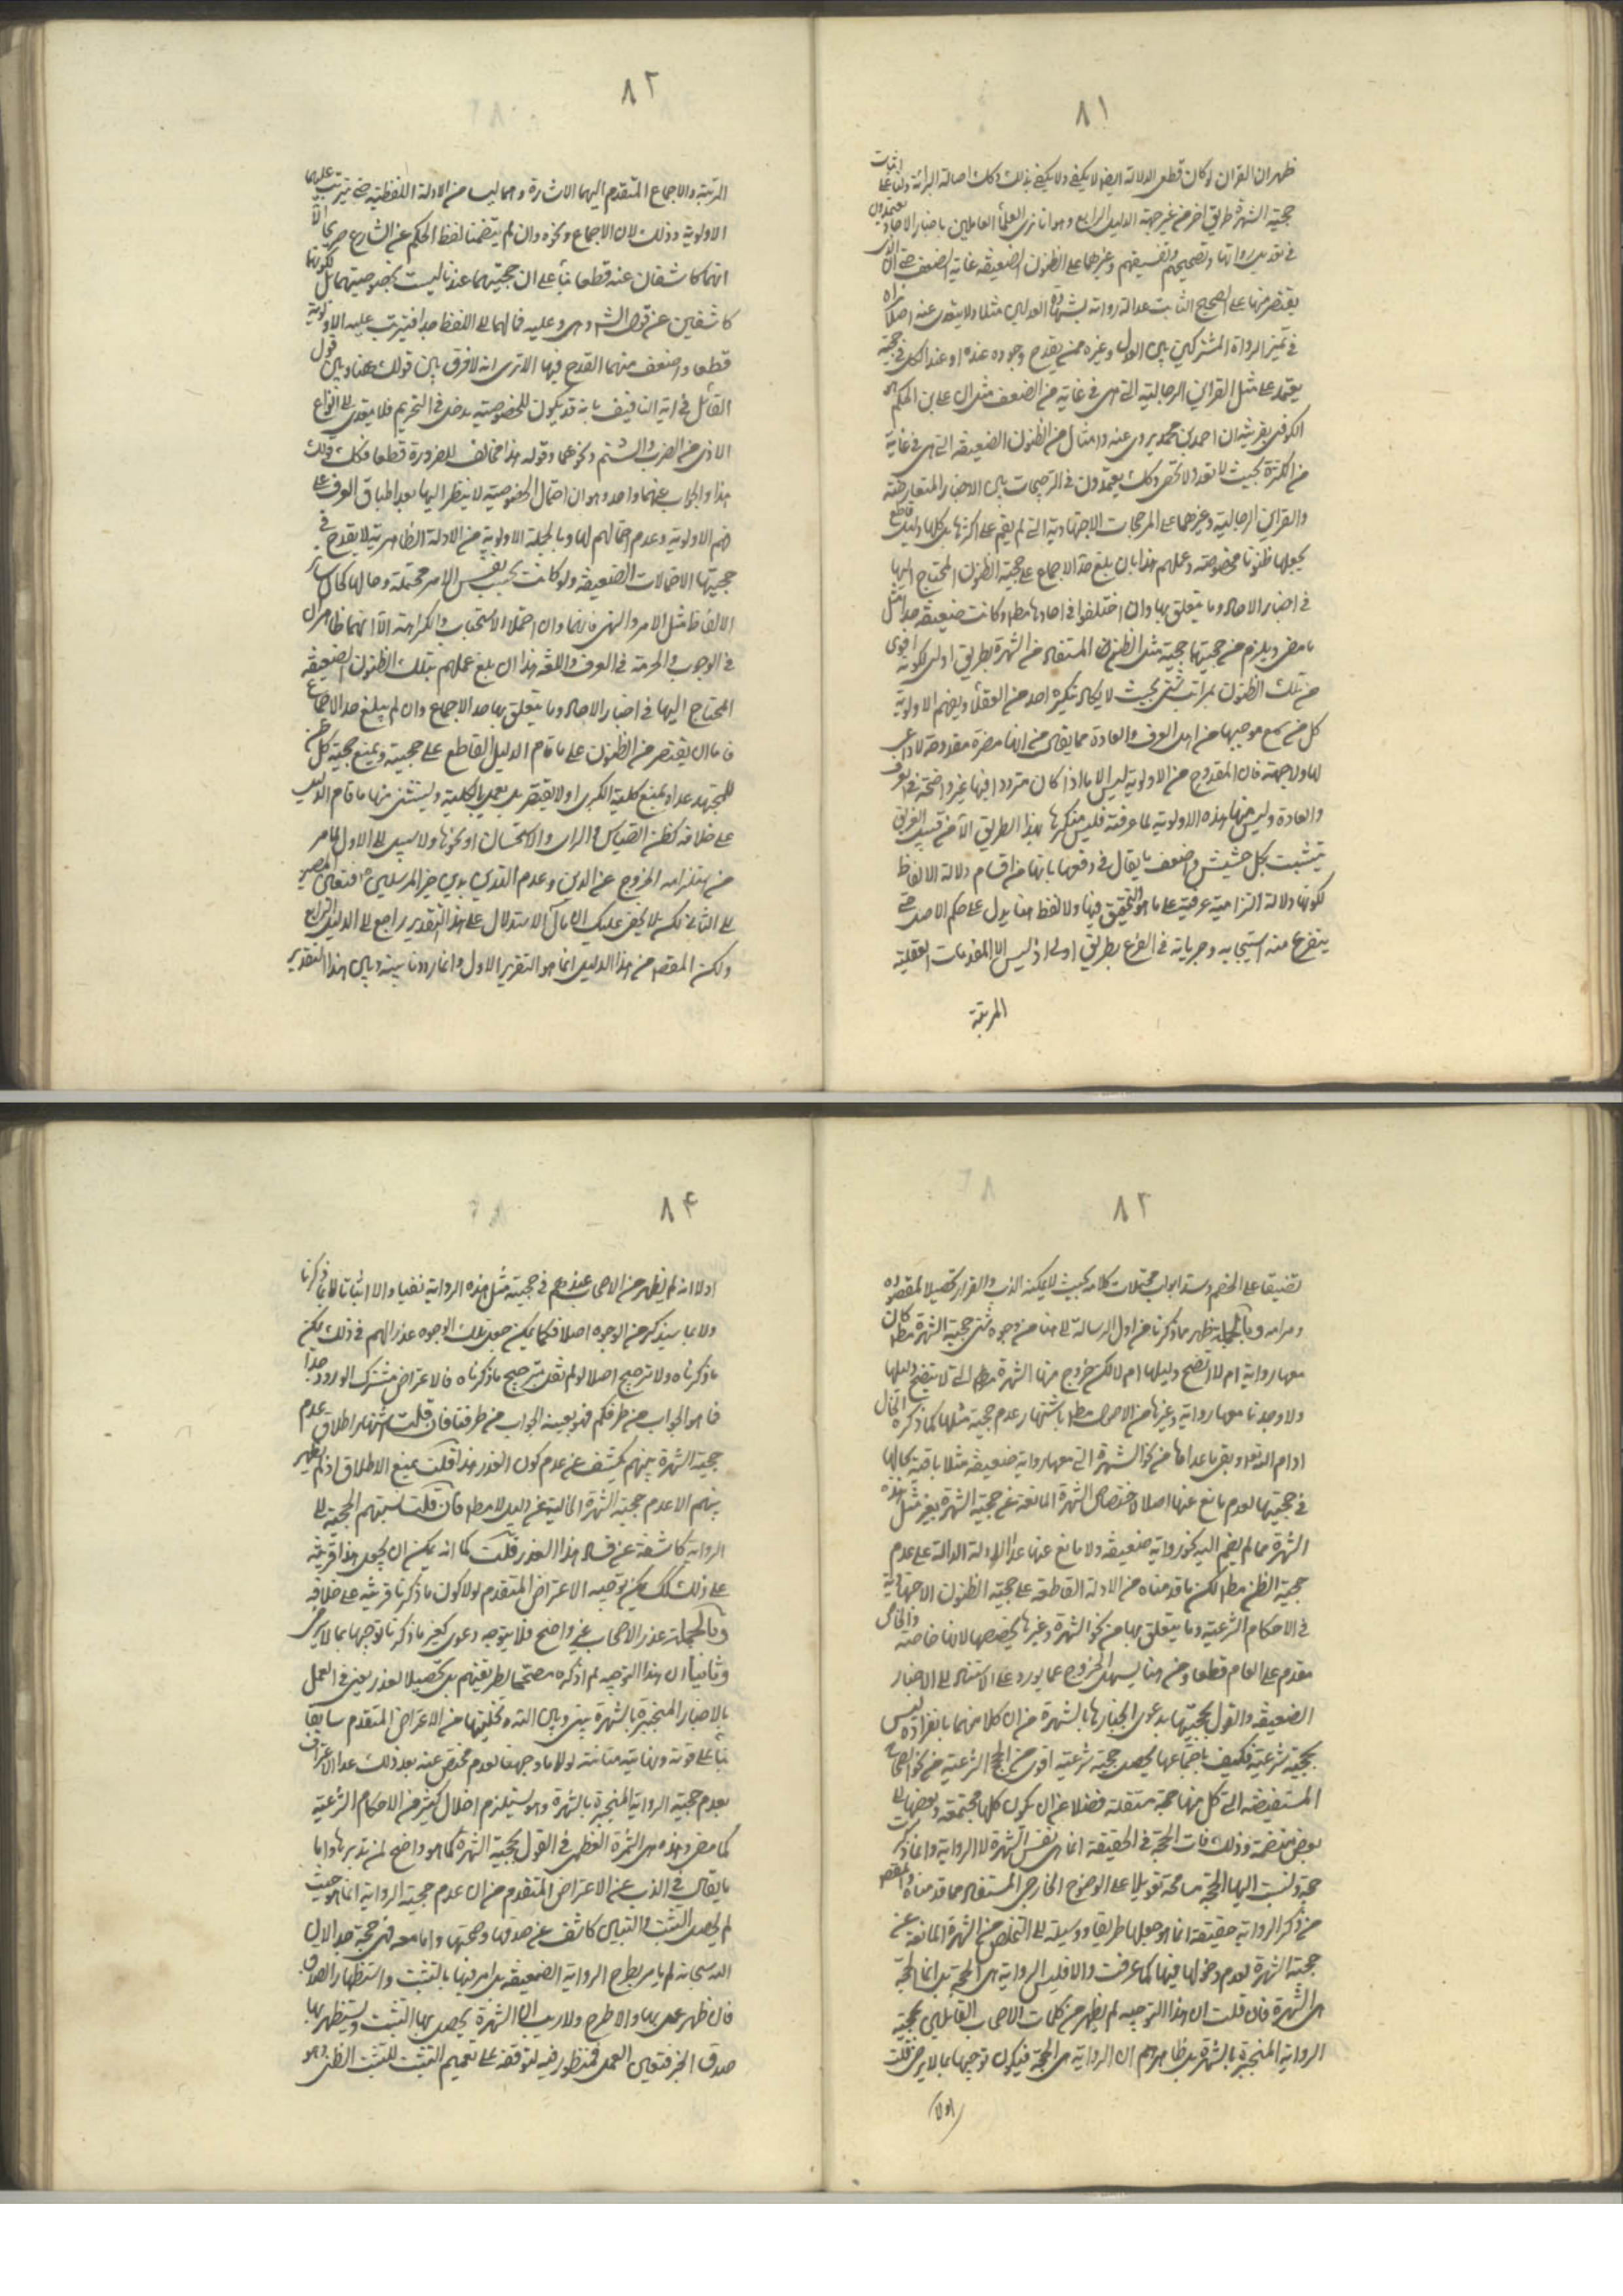 ٨١
ظهر ان القران لو كان قطعى الدلالة ايضا لا يكفى ولا يكفى بذلك وكك اصالة البرائة ولنا على اثبات
حجية الشهرة طريق اخر من غير جهة الدليل الرابع وهو انا نرى العلماء العاملين باخبار الاحاد يعتمدون
فى تعديل رواتها وتصحيحهم وتفسيقهم وغيرهما على الظنون الضعيفة غاية الضعف حتى ان الذى
يقتصر منها على الصحيح الثابت عدالة رواته بشهادة العدلين مثلا ولا يتعدى عنه اصلا نراه
فى تميز الرواة المشتركين بين العدل وغيره ممن يقدح وجوده عنده او عند الكل فى حجية
يعتمد على مثل القراين الرجالية التى هى فى غاية من الضعف مثل ان على بن الحكم هو
الكوفى بقرينة ان احمد بن محمد يروى عنه وامثال من الظنون الضعيفة التى هى فى غاية
من الكثرة بحيث لا تعد ولا تحصى وكك يعتمدون فى الترجيحات بين الاخبار المتعارضة
والقراين الرجالية وغيرهما على المرجحات الاجتهادية التى لم يقم على اكثرها بل كلها دليل قاطع
يجعلها ظنونا مخصوصة وعملهم هذا بان بلغ حد الاجماع على حجية الظنون المحتاج اليها
فى اخبار الاحاد وما يتعلق بها وان اختلفوا فى احادها مط وكانت ضعيفة جدا مثل
ما مضى ويلزم من حجيتها حجية مثل الظنون المستفاد من الشهرة بطريق اولى لكونه اقوى
من تلك الظنون بمراتب شتى بحيث لا يكاد ينكره احد من العقلاء ويفهم الاولوية
كل من سمع موجبها من اهل العرف والعادة مما يقال من انها مضرة مقدوحة لا داعى
لها ولا جهة فان المقدوح من الاولوية ليس الا ما اذا كان مترددا فيها غير واضحة فى العرف
والعادة وليس منها هذه الاولوية لما عرفته فليس منكرها بهذا الطريق الا من قبيل الغريق
يتشبث بكل حشيش واضعف ما يقال فى دفعها بانها من اقسام دلالة الالفاظ
لكونها دلالة التزامية عرفية على ما هو التحقيق فيها ولا لفظ هنا يدل على حكم الاصل حتى
يتفرع منه استتباعه وجريانه فى الفرع بطريق اولى اذ ليس الا المقدمات العقلية
المرتبة
٨٢
المرتبة والاجماع المتقدم اليهما الاشارة وهما ليسا من الادلة اللفظية حتى يترتب عليهما
الاولوية وذلك لان الاجماع ونحوه وان لم يتضمنا لفظ الحكم عن الشارع صريحا الا
انهما كاشفان عنه قطعا بناء على ان حجيتهما عندنا ليست بخصوصيتهما بل لكونهما
كاشفين عن قول الش وهى وعليه فمالهما الى اللفظ جدا فيترتب عليه الاولوية
قطعا واضعف منهما القدح فيها الا ترى انه لا فرق بين قولك هنا وبين قول
القائل فى اية التافيف بانه قد يكون للخصوصية مدخل فى التحريم فلا يتعدى الى انواع
الاذى من الضرب والشتم ونحوهما وقوله هذا مخالف للضرورة قطعا فكك قولك
هذا والجواب عنهما واحد وهو ان احتمال الخصوصية لا ينظر اليها بعد اطباق العرف على
فهم الاولوية وعدم احتمالهم لها وبالجملة الاولوية من الادلة الظاهرية لا يقدح فى
حجيتها الاحتمالات الضعيفة ولو كانت بحسب نفس الامر محتملة وحالها كحال ساير
الالفاظ مثل الامر والنهى فانهما وان احتملا الاستحباب والكراهة الا انهما ظاهران
فى الوجوب والحرمة فى العرف واللغة هذا ان بلغ عملهم بتلك الظنون الضعيفة
المحتاج اليها فى اخبار الاحاد وما يتعلق بها حد الاجماع وان لم يبلغ حد الاجماع
فاما ان يقتصر من الظنون على ما قام الدليل القاطع على حجيته ويمنع حجية كل ظن
للمجتهد عداه بمنع كلية الكبرى او لا يقتصر بل يعمل بالكلية ويستثنى منها ما قام الدليل
على خلافه كظن القياس والراى والاستحسان او نحوها ولا سبيل الى الاول لما مر
من استلزامه الخروج عن الدين وعدم التدين بدين خير المرسلين ص فتعين المصير
الى الثانى لكن لا يخفى عليك ان مآل الاستدلال على هذا التقدير راجع الى الدليل الرابع
ولكن المقصد من هذا الدليل انما هو التقرير الاول وانما رددنا بينه وبين هذا التقدير
٨٣
تضييقا على الخصم وسد ابواب محتملات كلامه بحيث لا يمكنه الذب والفرار تحصيلا لمقصوده
ومرامه وبالجملة ظهر مما ذكرنا من اول الرسالة الى هنا من وجوه شتى حجية الشهرة مط كان
معها رواية ام لا اتضح دليلها ام لا لكن خرج منها الشهرة مط التى لا يتضح دليلها
ولا وجدنا معها رواية وغيرها من الاصول مط باشتهار عدم حجية مثلها كما ذكره الخال
ادام الله تعالى وبقى ما عداها من نحو الشهرة التى معها رواية ضعيفة مثلا باقية بحالها
فى حجيتها لعدم مانع عنها اصلا لاختصاص الشهرة المانعة عن حجية الشهرة بغير مثل هذه
الشهرة مما لم يضم اليه نحو رواية ضعيفة ولا مانع عنها عدا الادلة الدالة على عدم
حجية الظن مط لكن ما قدمناه من الادلة القاطعة على حجية الظنون الاجتهادية
فى الاحكام الشرعية وما يتعلق بها من نحو الشهرة وغيرها يخصصها لانها خاصة والخاص
مقدم على العام قطعا ومن هنا يسهل الخروج عما يورد على الاستناد الى الاخبار
الضعيفة والقول بحجيتها بدعوى انجبارها بالشهرة من ان كلا منهما بانفراده ليس
بحجية شرعية فكيف باجتماعهما يحصل حجية شرعية اقوى من الحجج الشرعية من نحو الصحاح
المستفيضة التى كل منها حجة مستقلة فضلا عن ان يكون كلها مجتمعة وبعضها الى
بعض منضمة وذلك فان الحجة فى الحقيقة انما هى نفس الشهرة لا الرواية وانما ذكرت
حجة ونسبت اليها الحجية مسامحة تعويلا على الوضوح الخارجى المستفاد مما قدمناه والمقصد
من ذكر الرواية حقيقة انما هو جعلها طريقا ووسيلة الى التخلص من الشهرة المانعة عن
حجية الشهرة لعدم دخولها فيها كما عرفت والا فليس الرواية هى الحجة بل انما الحجة
هى الشهرة فان قلت ان هذا التوجيه لم يظهر من كلمات الاصحاب القائلين بحجية
الرواية المنجبرة بالشهرة بل ظاهرهم ان الرواية هى الحجة فيكون توجيها بما لا يرضى قلت
اولا
٨٤
اولا انه لم يظهر من الاصحاب عذرهم فى حجية مثل هذه الرواية نفيا ولا اثباتا لا بما ذكرنا
ولا بما سيذكر من الوجوه اصلا فكما يمكن جعل تلك الوجوه عذرا لهم فى ذلك يمكن
ما ذكرناه ولا ترجيح اصلا لو لم نقل بترجيح ما ذكرناه فالاعتراض مشترك الورود جدا
فما هو الجواب من طرفكم فهو بعينه الجواب من طرفنا فان قلت اشتهار اطلاق عدم
حجية الشهرة بينهم يكشف عن عدم كون العذر هذا قلت بمنع الاطلاق اذ لم يظهر
بينهم الا عدم حجية الشهرة الخالية عن دليل لا مط فان قلت نسبتهم الحجة الى
الرواية كاشفة عن فساد هذا العذر قلت كما انه يمكن ان يجعل هذا قرينة
على ذلك كك يمكن توجيه الاعتراض المتقدم لولا كون ما ذكرنا قرينة على خلافه
وبالجملة عذر الاصحاب غير واضح فلا يتوجه دعوى كون ما ذكرنا توجيها بما لا يرضى
وثانيا ان هذا التوجيه لم اذكره مصححا لطريقتهم بل تحصيلا لعذر يعنى فى العمل
بالاخبار المنجبرة بالشهرة بينى وبين الله وتخليتها من الاعتراض المتقدم سابقا
بناء على قوته ونهاية متانته لولا ما وجهنا لعدم مخلص عنه بعد ذلك عدا الاعتراف
بعدم حجية الرواية المنجبرة بالشهرة وهو يستلزم اخلال كثير من الاحكام الشرعية
كما مضى وهذه هى الثمرة العظمى فى القول بحجية الشهرة كما هو واضح لمن تدبرها واما
ما يقال فى الذب عن الاعتراض المتقدم من ان عدم حجية الرواية انما هو حيث
لم يحصل التثبت والتبين كاشف عن صدقها وصحتها واما معه فهى حجة جدا لان
الله سبحانه لم يامر بطرح الرواية الضعيفة بل امر فيها بالتثبت واستظهار الصدق
فان ظهر عمل بها والا طرح ولا ريب ان الشهرة يحصل بها التثبت ويستظهر بها
صدق الخبر فتعين العمل فمنظور فيه لتوقفه على تعميم التثبت للتثبت الظنى وهو